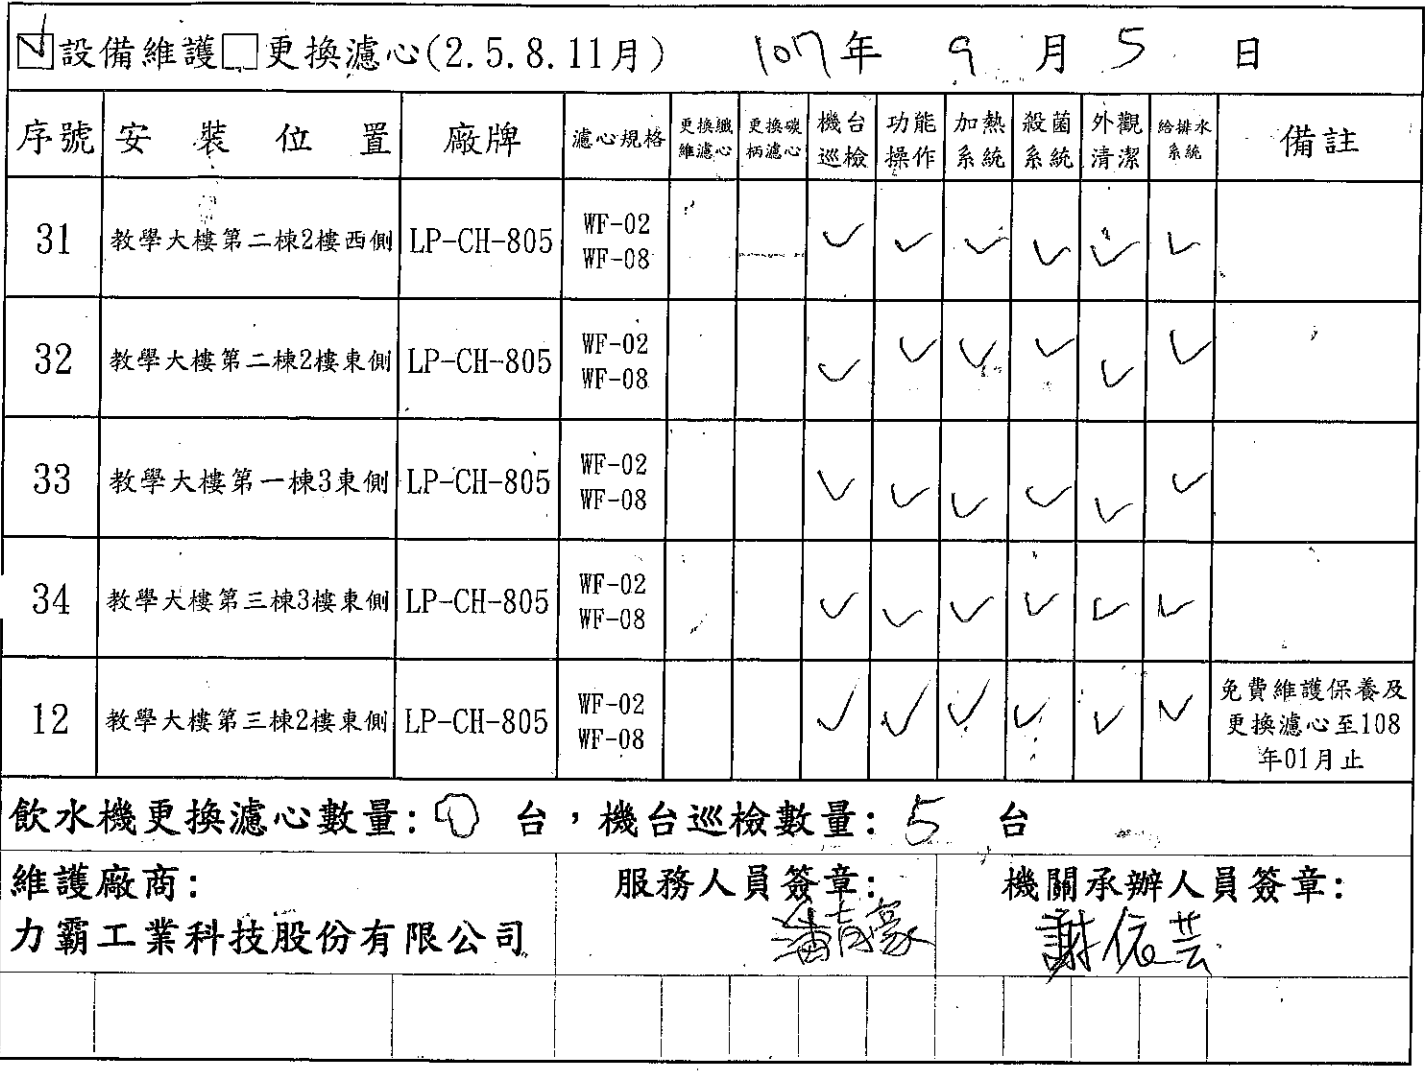 ☑設備維護☐更換濾心(2.5.8.11月) 107年 9月 5日
序號 安裝位置 廠牌 濾心規格 更換纖維濾心 更換碳柄濾心 機台巡檢 功能操作 加熱系統 殺菌系統 外觀清潔 給排水系統 備註
31 教學大樓第二棟2樓西側 LP-CH-805 WF-02 WF-08 ✓ ✓ ✓ ✓ ✓ ✓
32 教學大樓第二棟2樓東側 LP-CH-805 WF-02 WF-08 ✓ ✓ ✓ ✓ ✓ ✓
33 教學大樓第一棟3東側 LP-CH-805 WF-02 WF-08 ✓ ✓ ✓ ✓ ✓ ✓
34 教學大樓第三棟3樓東側 LP-CH-805 WF-02 WF-08 ✓ ✓ ✓ ✓ ✓ ✓
12 教學大樓第三棟2樓東側 LP-CH-805 WF-02 WF-08 ✓ ✓ ✓ ✓ ✓ ✓ 免費維護保養及更換濾心至108年01月止
飲水機更換濾心數量: 0 台，機台巡檢數量: 5 台
維護廠商: 服務人員簽章: 機關承辦人員簽章:
力霸工業科技股份有限公司 潘青豪 謝依芸